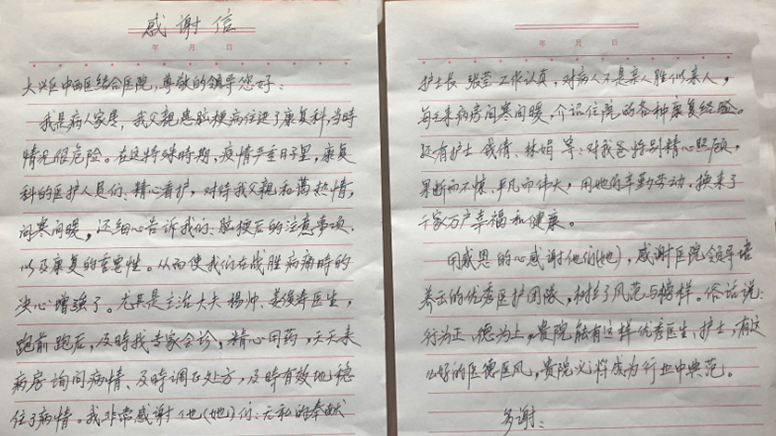 感谢信
年 月 日
大兴区中西医结合医院，尊敬的领导您好：
我是病人家属，我父亲患脑梗病住进了康复科，当时
情况很危险。在这特殊时期，疫情严重日子里，康复
科的医护人员们、精心看护，对待我父亲和蔼热情，
问寒问暖，还细心告诉我们：脑梗后的注意事项、
以及康复的重要性。从而使我们在战胜病痛时的
决心增强了。尤其是主治大夫杨帅、姜俊寿医生，
跑前跑后，及时找专家会诊，精心用药，天天来
病房询问病情、及时调正处方，及时有效地稳
住了病情。我非常感谢他(她)们：无私的奉献
年 月 日
护士长 张莹工作认真，对病人不是亲人胜似亲人，
每天来病房问寒问暖，介识住院的各种康复经验。
还有护士 钱倩、林娟 等：对我爸特别精心照顾，
果断而不惊、平凡而伟大，用她们辛勤劳动、换来了
千家万户幸福和健康。
用感恩的心感谢他们(她)，感谢医院领导培
养出的优秀医护团队，树立了风范与榜样。俗话说：
行为正、德为上，贵院能有这样优秀医生、护士，有这
么好的医德医风，贵院必将成为行业中典范。
多谢：